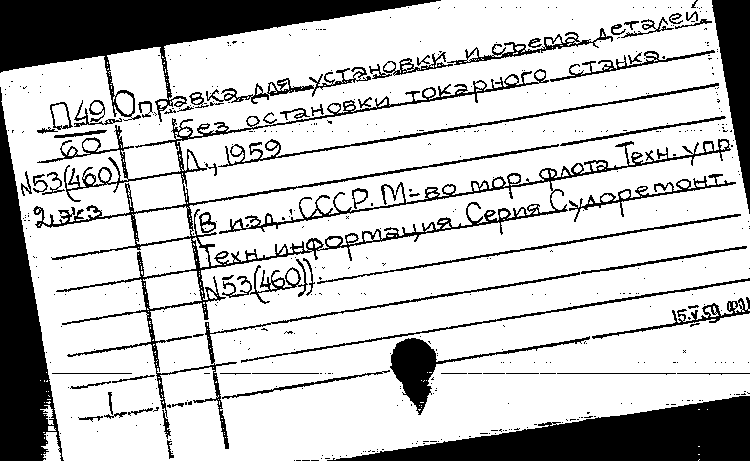 Оправка для установки и съема деталей
П49 без остановки токарного станка.
60 Л., 1959
N53(460)
2 экз (В изд.: СССР. М-во мор. флота. Техн. упр
Техн. информация. Серия Судоремонт.
N53(460)).
15.V.59
1